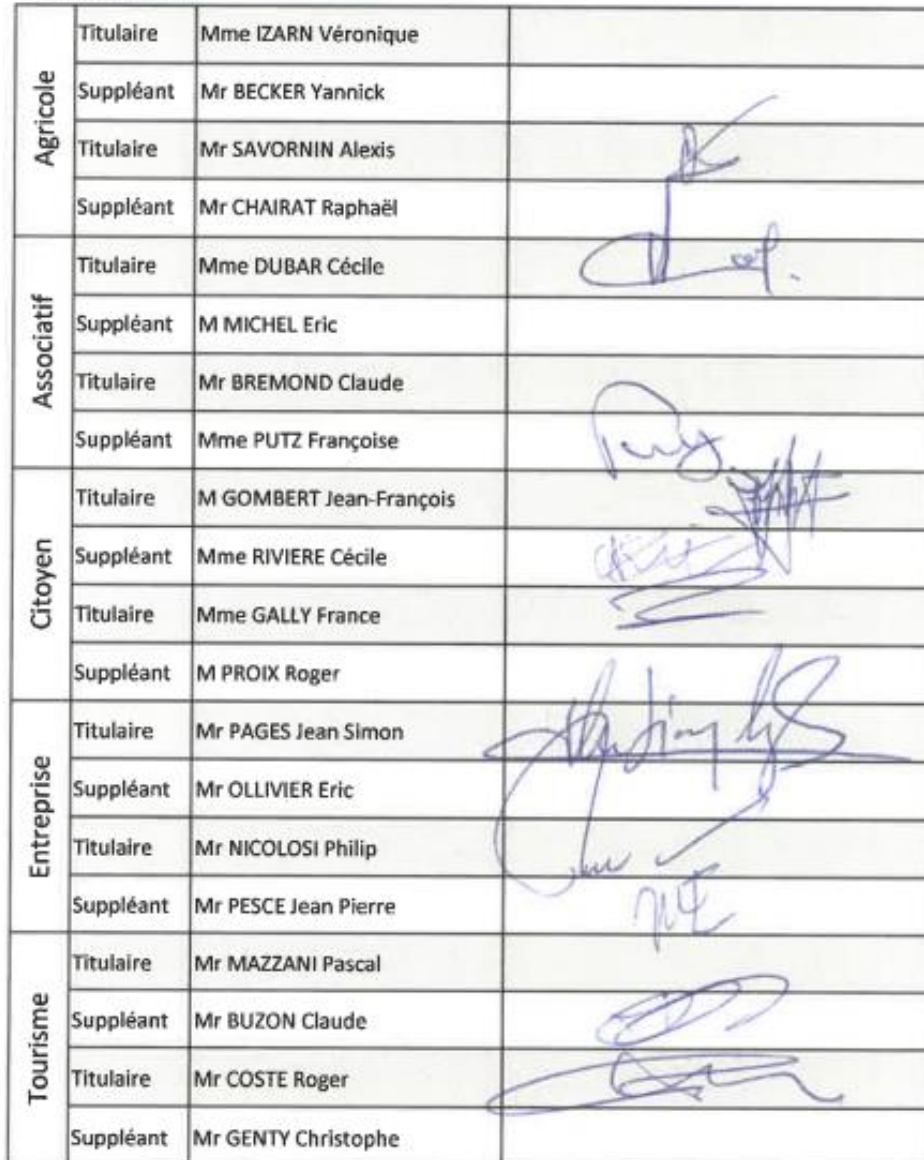 Agricole
Titulaire Mme IZARN Véronique
Suppléant Mr BECKER Yannick
Titulaire Mr SAVORNIN Alexis
Suppléant Mr CHAIRAT Raphaël
Associatif
Titulaire Mme DUBAR Cécile
Suppléant M MICHEL Eric
Titulaire Mr BREMOND Claude
Suppléant Mme PUTZ Françoise
Citoyen
Titulaire M GOMBERT Jean-François
Suppléant Mme RIVIERE Cécile
Titulaire Mme GALLY France
Suppléant M PROIX Roger
Entreprise
Titulaire Mr PAGES Jean Simon
Suppléant Mr OLLIVIER Eric
Titulaire Mr NICOLOSI Philip
Suppléant Mr PESCE Jean Pierre
Tourisme
Titulaire Mr MAZZANI Pascal
Suppléant Mr BUZON Claude
Titulaire Mr COSTE Roger
Suppléant Mr GENTY Christophe